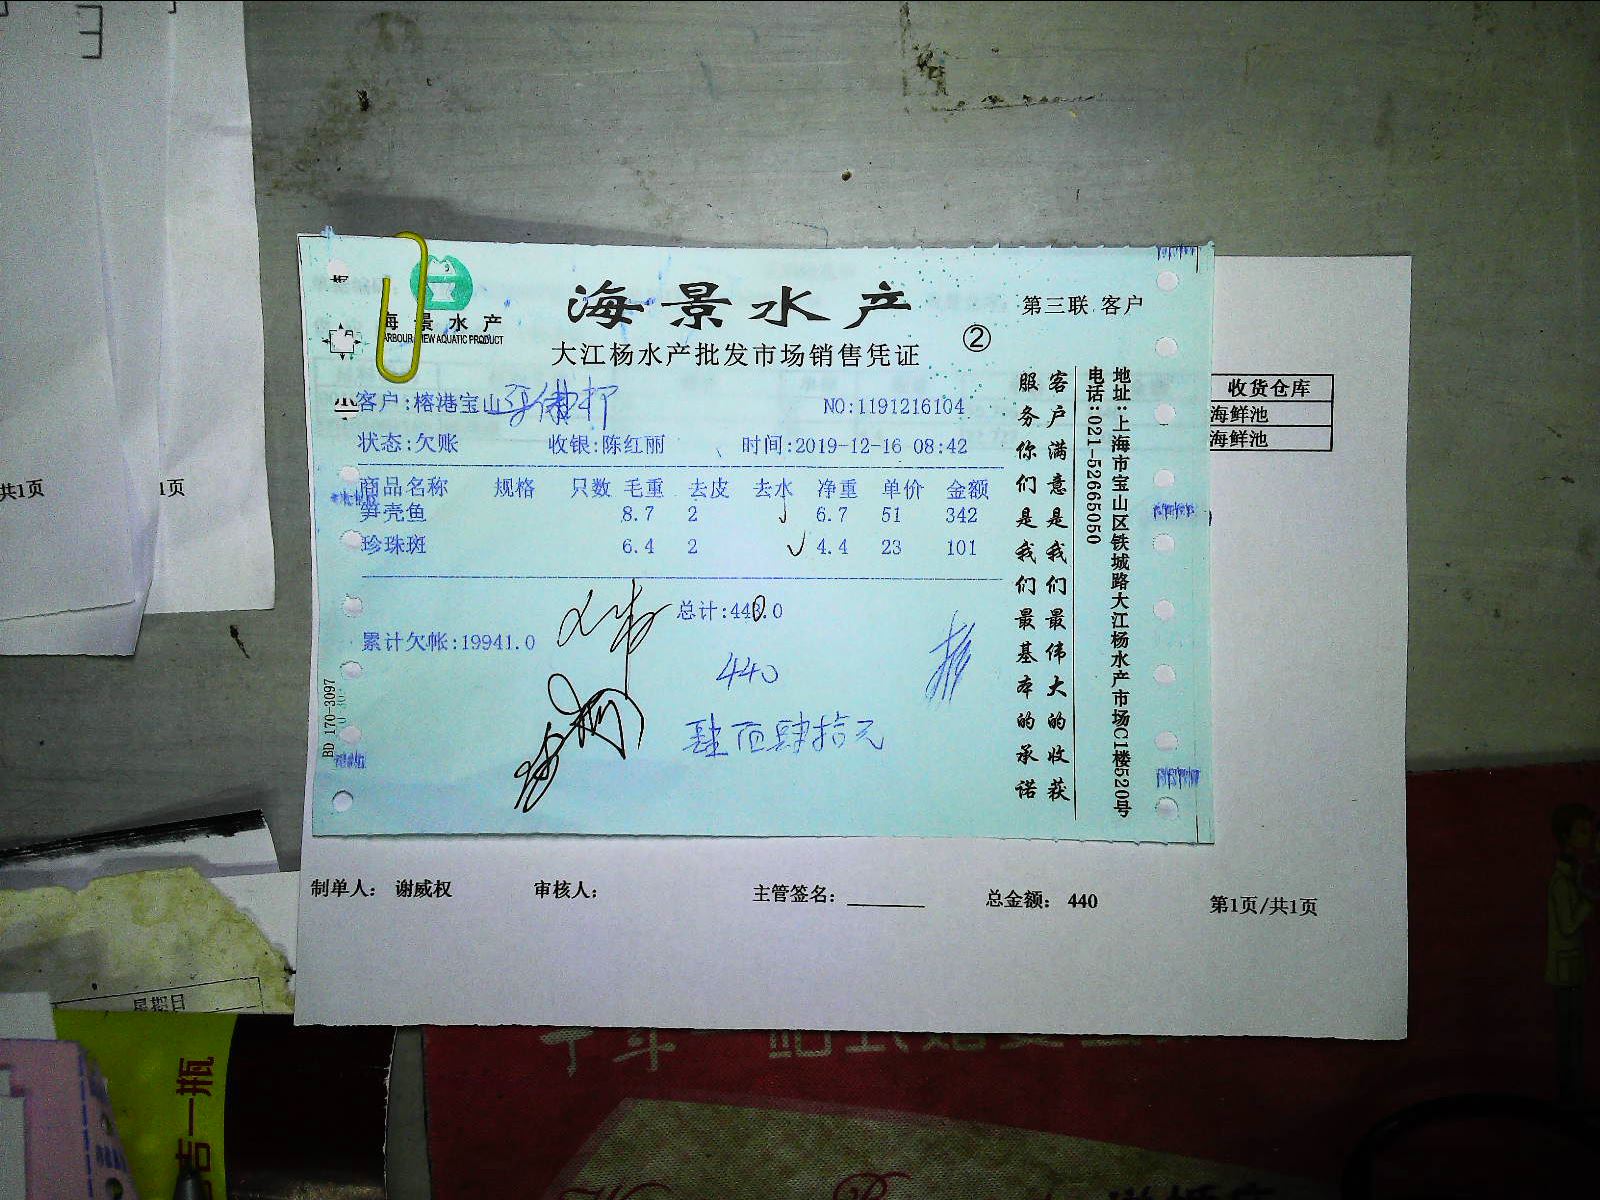 共1页
1页
海景水产
HARBOUR VIEW AQUATIC PRODUCT
海景水产
大江杨水产批发市场销售凭证
②
第三联 客户
客户:榕港宝山
NO:1191216104
状态:欠账 收银:陈红丽 时间:2019-12-16 08:42
商品名称 规格 只数 毛重 去皮 去水 净重 单价 金额
笋壳鱼 8.7 2 6.7 51 342
珍珠斑 6.4 2 4.4 23 101
总计:440.0
累计欠帐:19941.0
440
肆佰肆拾元
BD 170-3097
客户满意是我们最伟大的收获
服务你们是我们最基本的承诺
地址:上海市宝山区铁城路大江杨水产市场C1楼520号
电话:021-52665050
收货仓库
海鲜池
海鲜池
制单人: 谢威权 审核人: 主管签名: 总金额: 440 第1页/共1页
星期日